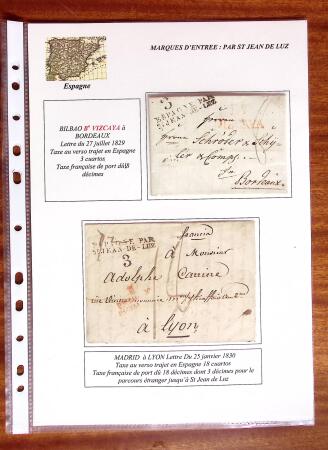 MARQUES D'ENTREE : PAR ST JEAN DE LUZ
Espagne
BILBAO Bº VIZCAYA à
BORDEAUX
Lettre du 27 juillet 1829
Taxe au verso trajet en Espagne
3 cuartos
Taxe française de port dû 8
décimes
3
ESPAGNE PAR
ST JEAN-DE-LUZ
Schröder & Schÿ
ler & Comp.
Bordeaux
ESPAGNE PAR
ST JEAN-DE-LUZ
3
francia
A Monsieur
Adolphe
à Lyon
MADRID à LYON Lettre Du 25 janvier 1830
Taxe au verso trajet en Espagne 18 cuartos
Taxe française de port dû 18 décimes dont 3 décimes pour le
parcours étranger jusqu'à St Jean de Luz